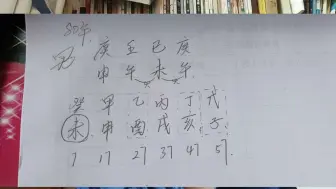 80年
男 庚 壬 己 庚
申 午 未 午
癸 甲 乙 丙 丁 戊
未 申 酉 戌 亥 子
7 17 27 37 47 57